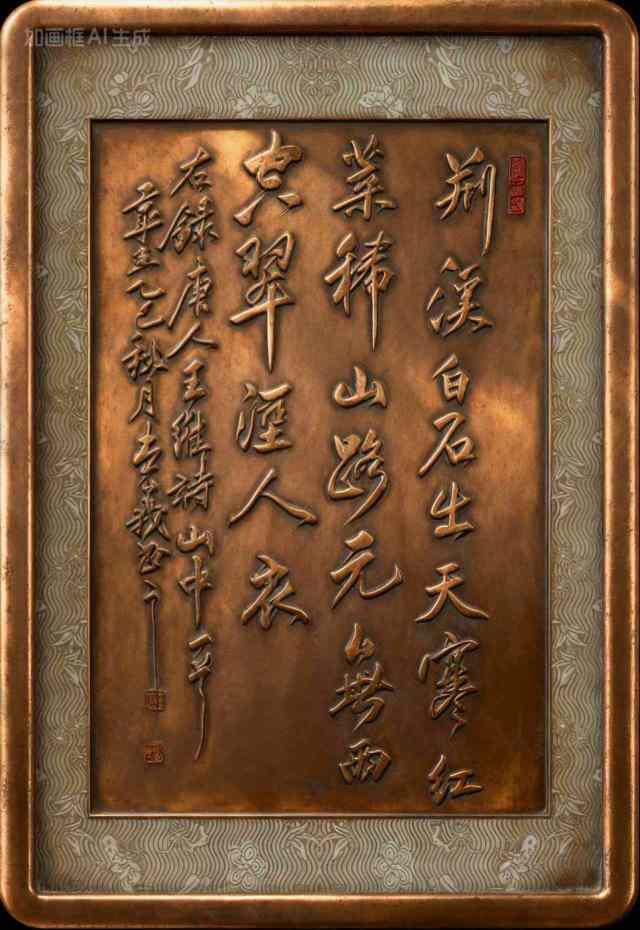 如画框AI生成
荆溪白石出天寒红
葉稀山路元雨
空翠湿人衣
右録唐人王維詩山中一
乙巳秋月